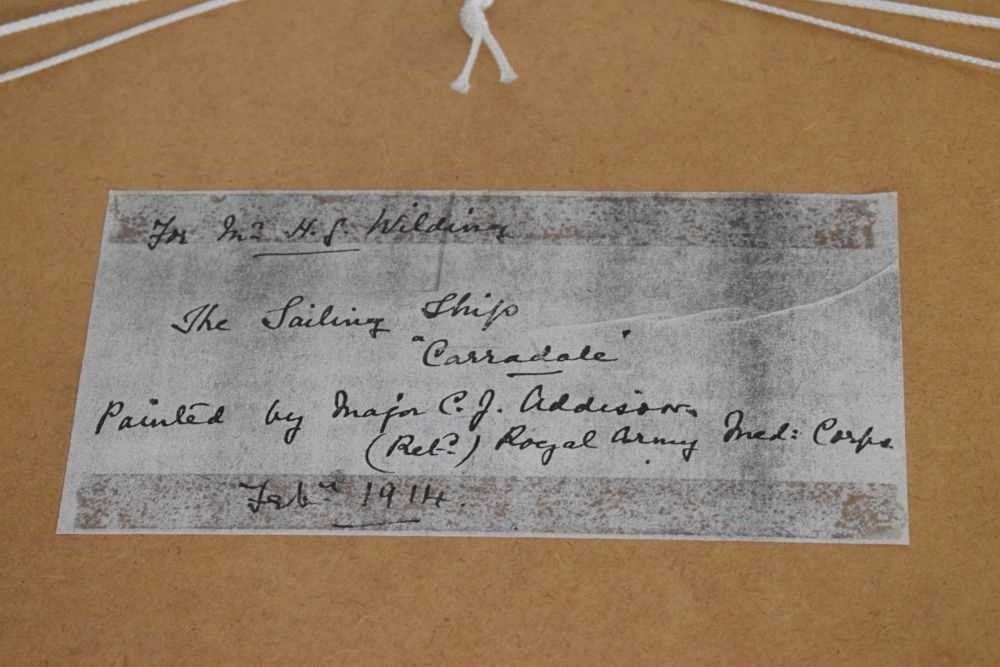 For Mr H. J. Wilding
The Sailing Ship
"Carradale"
Painted by Major C. J. Addison.
(Retd.) Royal Army Med: Corps.
Feby 1914.